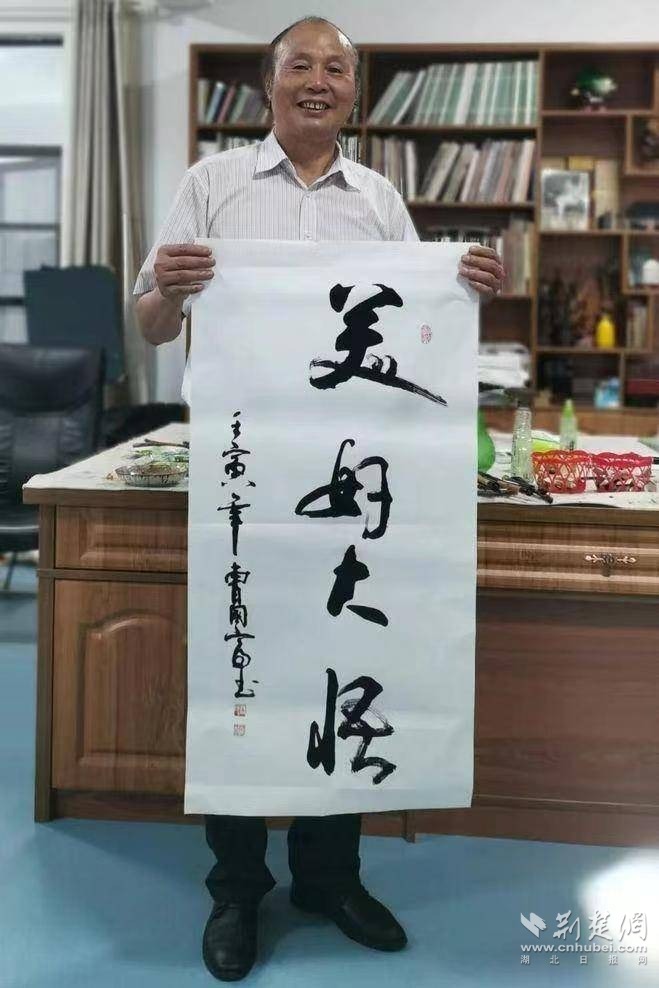 美好大悟
壬寅年曹国富书
荆楚网
www.cnhubei.com
湖北日报网